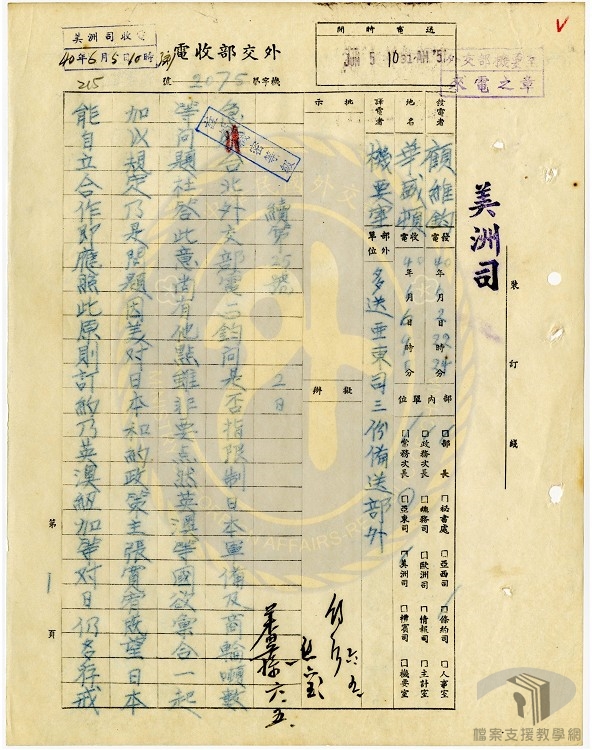 外交部收電
機字第2075號
美洲司 電收
40年6月5日10時
215
送電時間
JUN 5 10 31 AM '51
外交部機要室
來電之章
美洲司
裝訂線
發電者 顧維鈞
地名 華盛頓
譯電者 機要室
發電 40年6月2日22時24分
收電 40年6月6日4時45分
部外單位 多送亞東司三份備送部外
部內單位
部長
政務次長
常務次長
秘書處
總務司
亞東司
亞西司
歐洲司
美洲司
條約司
情報司
禮賓司
人事室
主計室
機要室
批示
擬辦
續第25號 2日
急台北外交部電二鈞問是否指限制日本軍備及商輪噸數
等問題杜答此意尚有他點雖非要点然英澳等國欲彙合一起
加以規定乃是問題因美对日本和約政策主張寬者欲望日本
能自立合作即應照此原則訂約乃英澳紐加等对日仍多存戒
第1頁
六.五.
檔案支援教學網